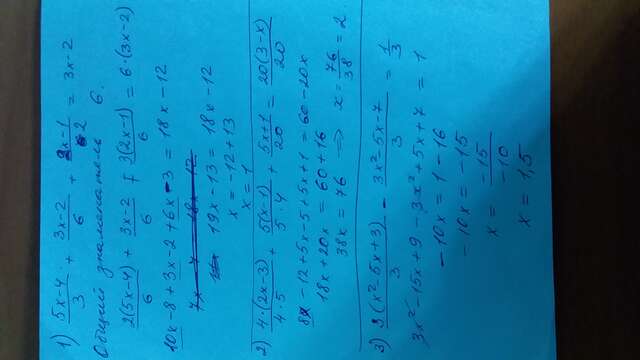 1) (5x-4)/3 + (3x-2)/6 + (2x-1)/2 = 3x-2
Общий знаменатель 6.
2(5x-4)/6 + (3x-2)/6 + 3(2x-1)/6 = 6·(3x-2)
10x-8+3x-2+6x-3 = 18x-12
19x-13 = 18x-12
x = -12+13
x = 1
2) 4·(2x-3)/4·5 + 5(x-1)/5·4 + (5x+1)/20 = 20(3-x)/20
8x-12+5x-5+5x+1 = 60-20x
18x+20x = 60+16
38x = 76 ⇒ x = 76/38 = 2
3) 3(x²-5x+3)/3 - (3x²-5x-7)/3 = 1/3
3x²-15x+9-3x²+5x+7 = 1
-10x = 1-16
-10x = -15
x = -15/-10
x = 1,5